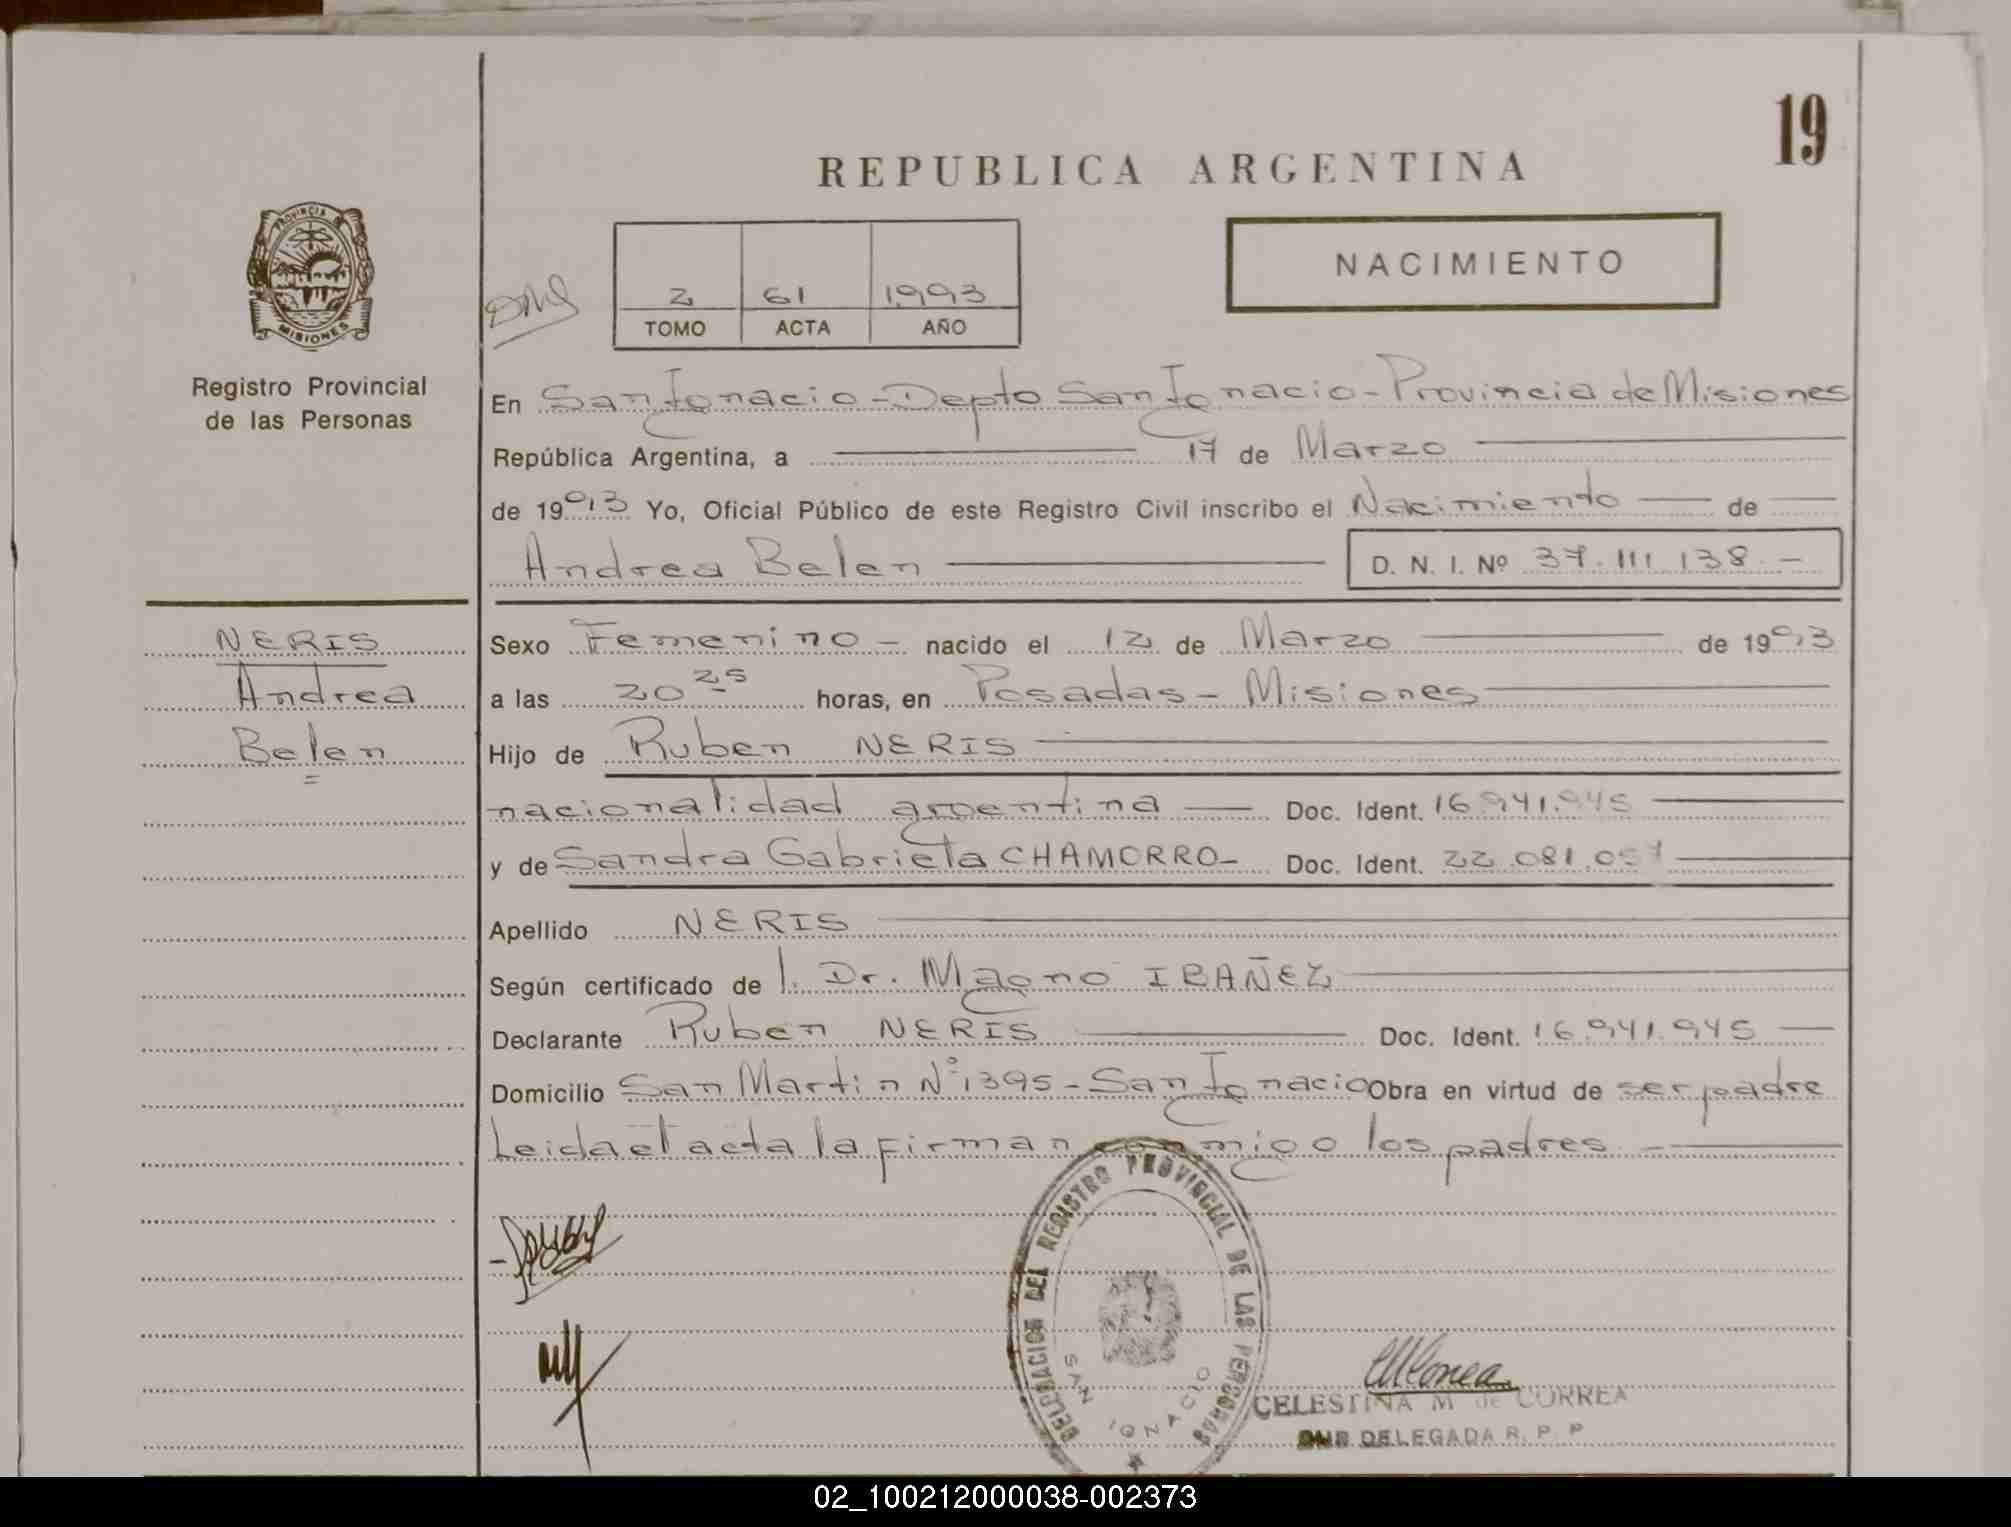 19
REPUBLICA ARGENTINA
PROVINCIA
MISIONES
Registro Provincial
de las Personas
2 61 1993
TOMO ACTA AÑO
NACIMIENTO
En San Ignacio - Depto San Ignacio - Provincia de Misiones
República Argentina, a 17 de Marzo
de 1993 Yo, Oficial Público de este Registro Civil inscribo el Nacimiento de
Andrea Belen D. N. I. Nº 37.111.138.-
NERIS
Andrea
Belen
Sexo Femenino - nacido el 12 de Marzo de 1993
a las 20 25 horas, en Posadas - Misiones
Hijo de Ruben NERIS
nacionalidad argentina Doc. Ident. 16.941.945
y de Sandra Gabriela CHAMORRO- Doc. Ident. 22.081.057
Apellido NERIS
Según certificado de l. Dr. Magno IBAÑEZ
Declarante Ruben NERIS Doc. Ident. 16.941.945
Domicilio San Martin Nº 1395 - San Ignacio Obra en virtud de ser padre
Leida el acta la firman conmigo los padres
DELEGACION DEL REGISTRO PROVINCIAL DE LAS PERSONAS
SAN IGNACIO
CELESTINA M de CORREA
SUB DELEGADA R. P. P
02_100212000038-002373